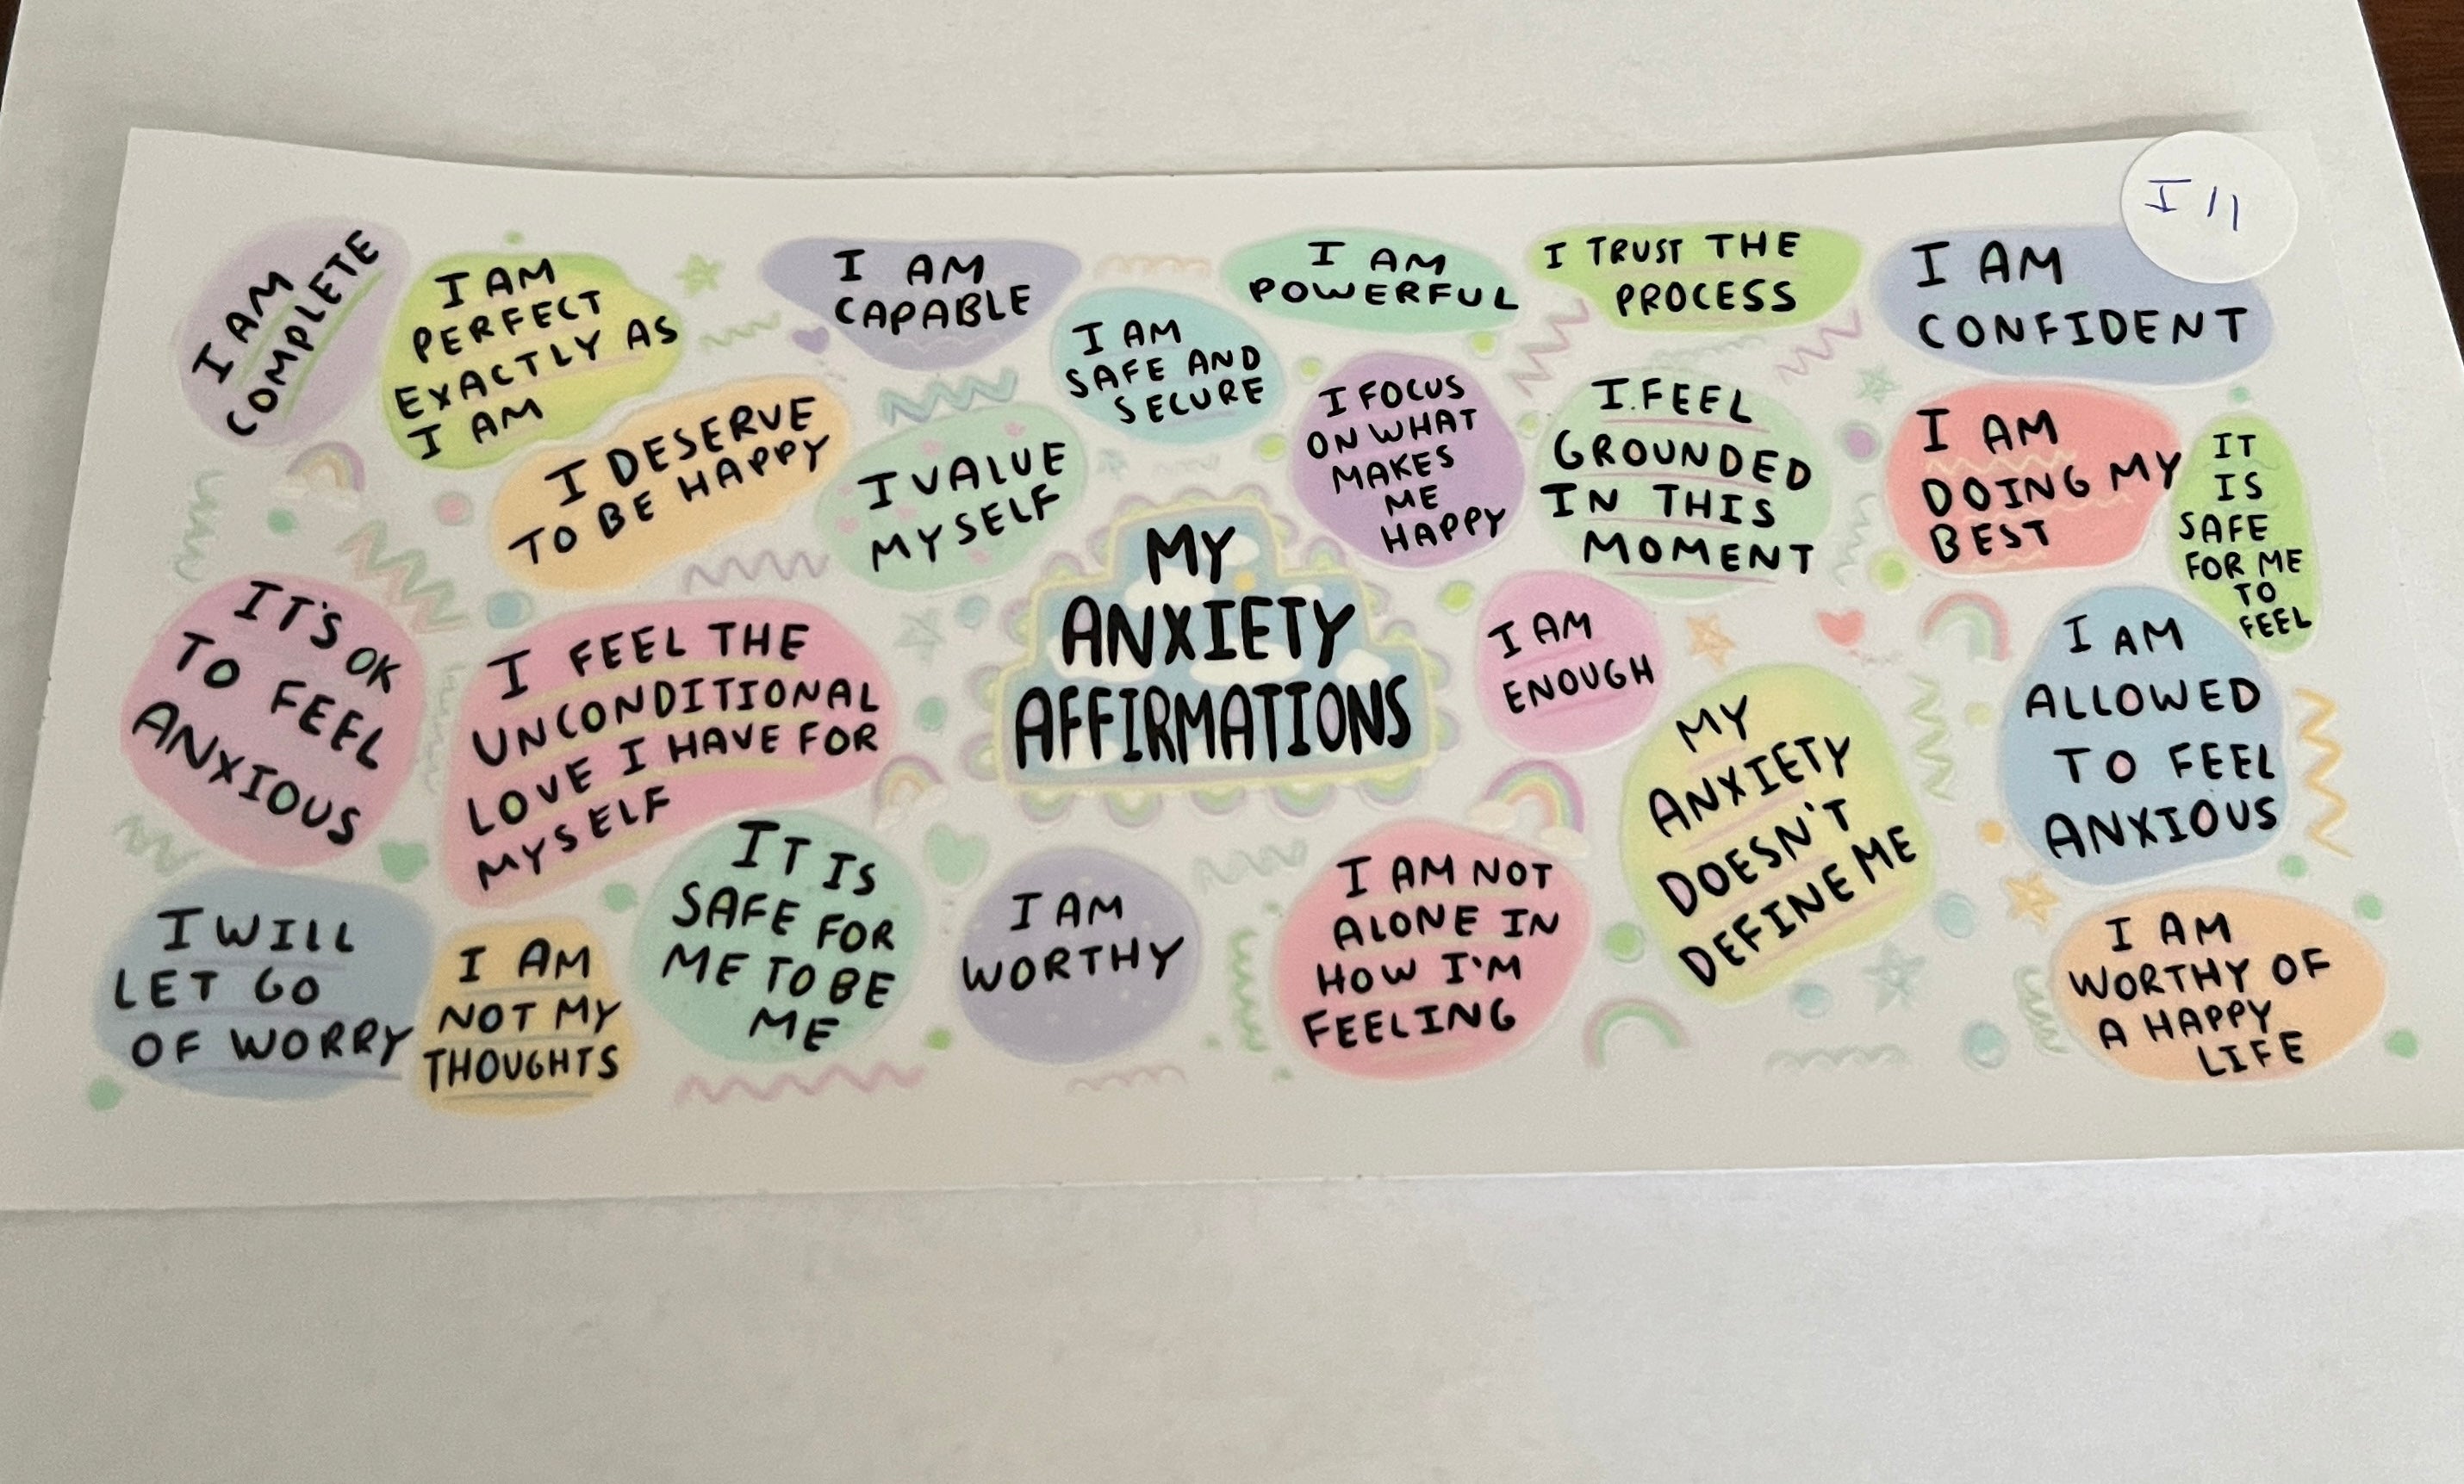 I AM
COMPLETE
I AM
PERFECT
EXACTLY AS
I AM
I AM
CAPABLE
I AM
SAFE AND
SECURE
I AM
POWERFUL
I TRUST THE
PROCESS
I AM
CONFIDENT
I11
I DESERVE
TO BE HAPPY
I VALUE
MYSELF
I FOCUS
ON WHAT
MAKES
ME
HAPPY
I FEEL
GROUNDED
IN THIS
MOMENT
I AM
DOING MY
BEST
IT
IS
SAFE
FOR ME
TO
FEEL
IT'S OK
TO FEEL
ANXIOUS
I FEEL THE
UNCONDITIONAL
LOVE I HAVE FOR
MYSELF
MY
ANXIETY
AFFIRMATIONS
I AM
ENOUGH
MY
ANXIETY
DOESN'T
DEFINE ME
I AM
ALLOWED
TO FEEL
ANXIOUS
I WILL
LET GO
OF WORRY
I AM
NOT MY
THOUGHTS
IT IS
SAFE FOR
ME TO BE
ME
I AM
WORTHY
I AM NOT
ALONE IN
HOW I'M
FEELING
I AM
WORTHY OF
A HAPPY
LIFE